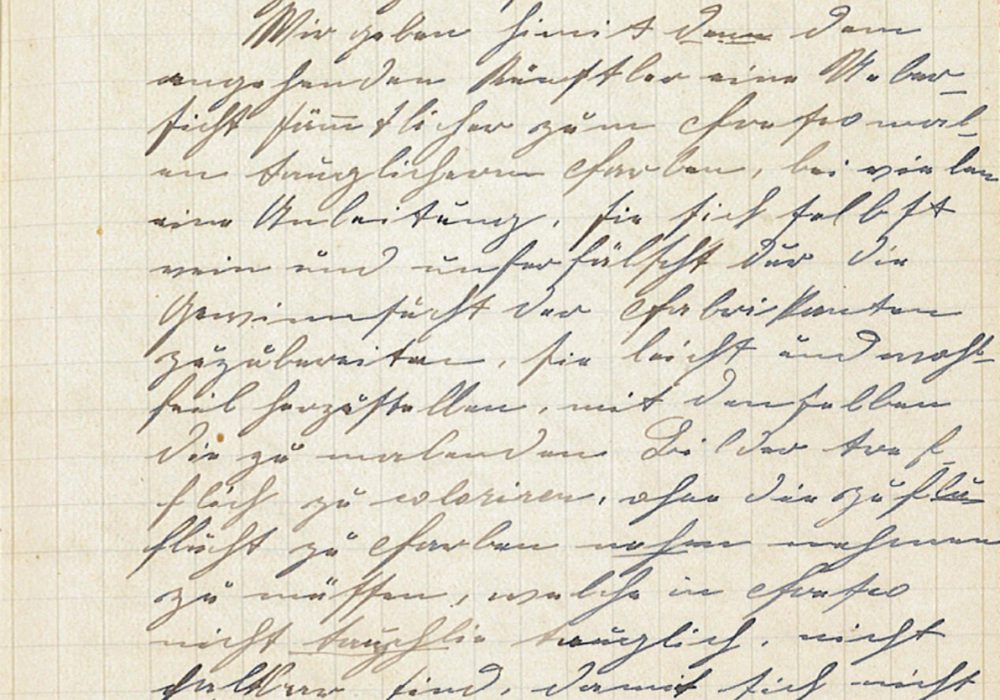 Wir geben hiemit denn dem
angehenden Künstler eine Ueber-
sicht sämmtlicher zum Frescomal-
en tauglichern Farben, bei vielen
eine Anleitung, sie sich selbst
rein und unferfälscht dur die
Gewinnsucht der Fabrikanten
zuzubereiten, sie leicht und wohl-
feil herzustellen, mit denselben
die zu malenden Bilder tref-
flich zu coloriren, ohne die zuflu
flucht zu Farben nehm nehmen
zu müssen, welche in Fresco
nicht tauchlie tauglich, nicht
haltbar sind, damit sich nicht